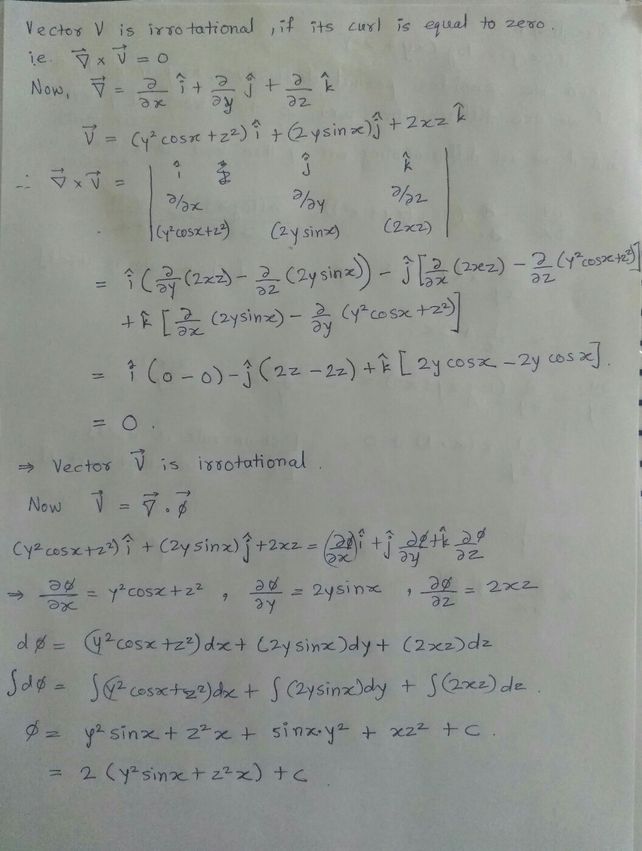 Vector V is irrotational, if its curl is equal to zero.
i.e. ∇⃗ × V⃗ = 0
Now, ∇⃗ = ∂/∂x î + ∂/∂y ĵ + ∂/∂z k̂
V⃗ = (y² cosx + z²) î + (2ysinx) ĵ + 2xz k̂
∴ ∇⃗ × V⃗ = | î ĵ k̂ |
| ∂/∂x ∂/∂y ∂/∂z |
| (y²cosx+z²) (2ysinx) (2xz) |
= î (∂/∂y (2xz) − ∂/∂z (2ysinx)) − ĵ [∂/∂x (2xz) − ∂/∂z (y²cosx+z²)]
+ k̂ [∂/∂x (2ysinx) − ∂/∂y (y²cosx+z²)]
= î (0−0) − ĵ (2z−2z) + k̂ [2y cosx − 2y cosx].
= 0.
⇒ Vector V⃗ is irrotational.
Now V⃗ = ∇⃗ . ∅⃗
(y²cosx+z²) î + (2ysinx) ĵ + 2xz = (∂∅/∂x) î + ĵ ∂∅/∂y + k̂ ∂∅/∂z
⇒ ∂∅/∂x = y²cosx + z² , ∂∅/∂y = 2ysinx , ∂∅/∂z = 2xz
d∅ = (y²cosx+z²)dx + (2ysinx)dy + (2xz)dz
∫d∅ = ∫(y²cosx+z²)dx + ∫(2ysinx)dy + ∫(2xz)dz.
∅ = y²sinx + z²x + sinx·y² + xz² + c.
= 2 (y²sinx + z²x) + c